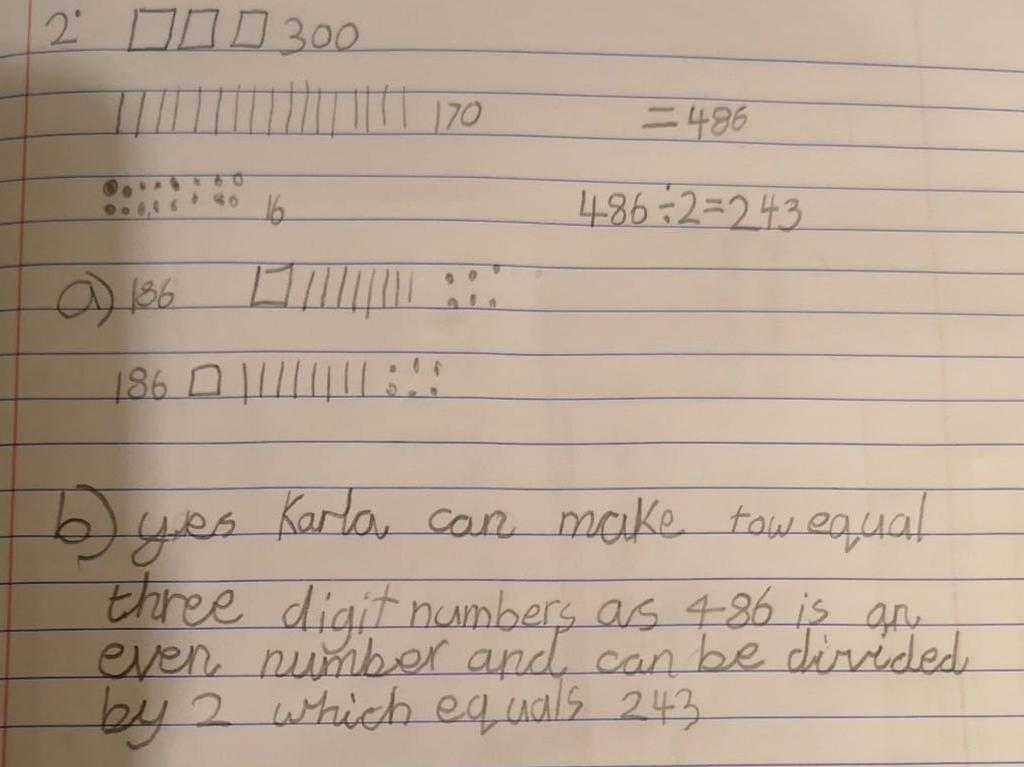 2. 300
170 = 486
16 486 ÷ 2 = 243
a) 186
186
b) yes Karla can make tow equal
three digit numbers as 486 is an
even number and can be divided
by 2 which equals 243